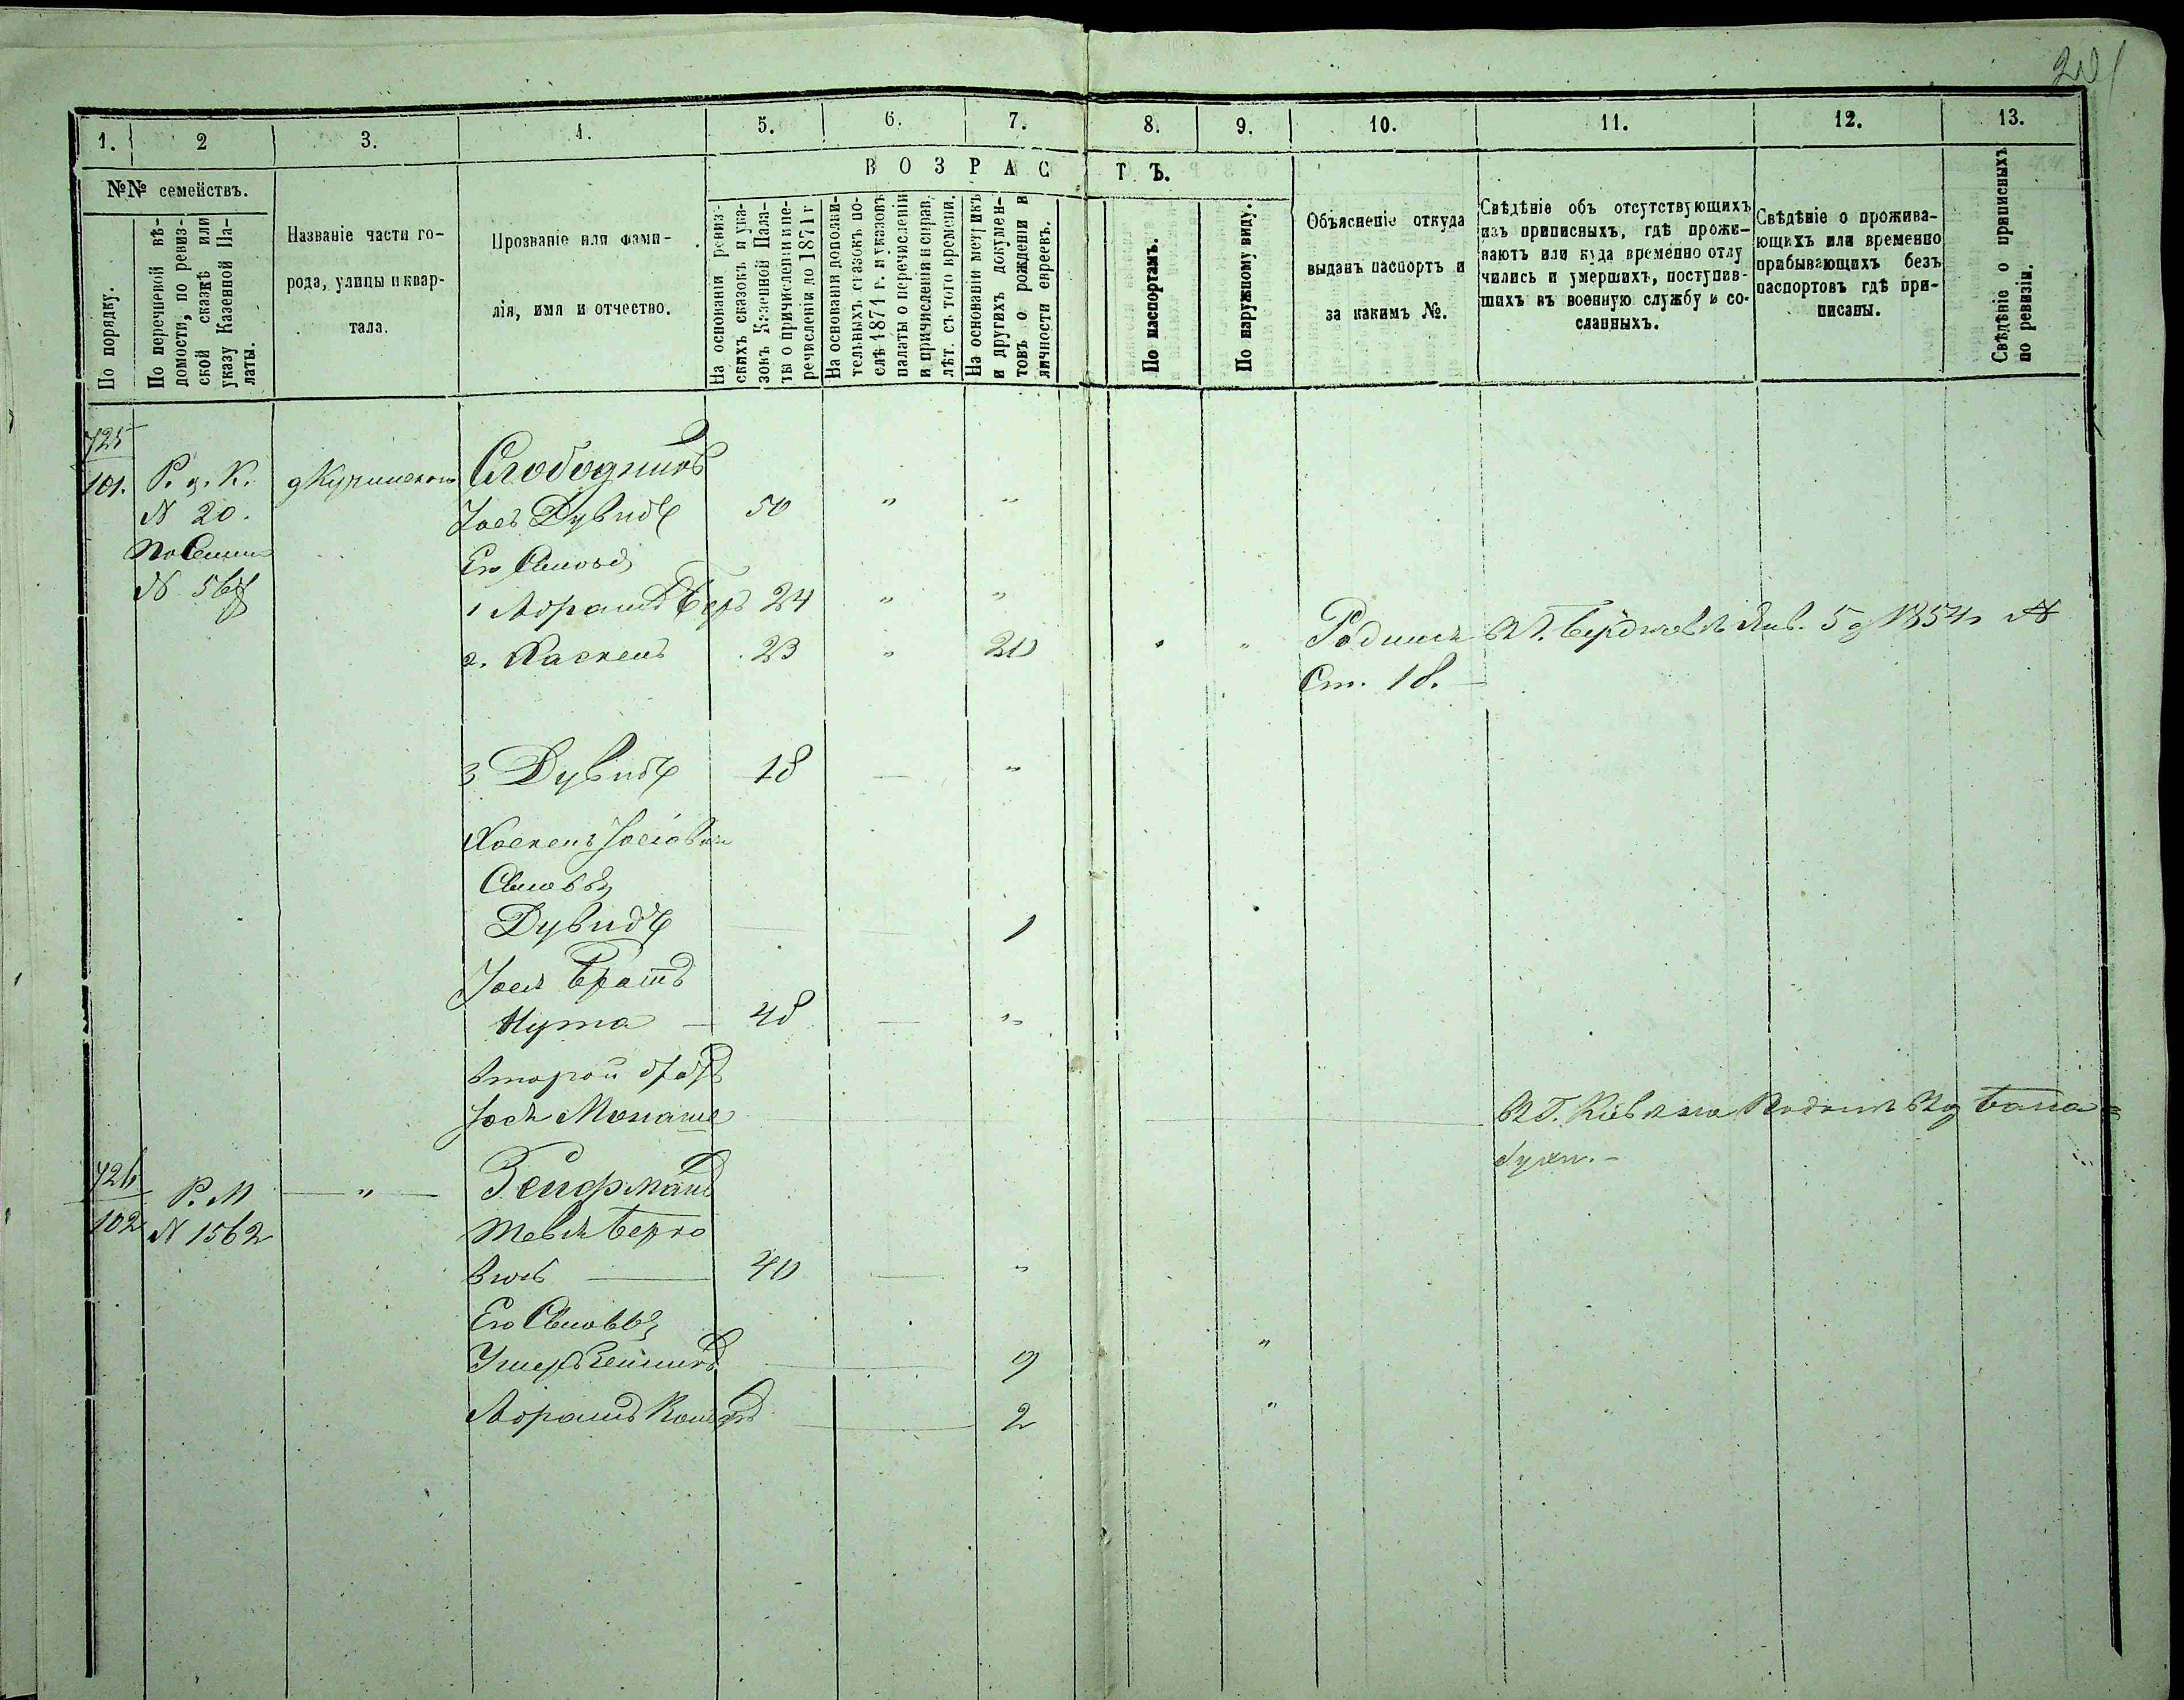 1. 2 3. 4. 5. 6. 7. 8. 9. 10. 11. 12. 13.
№№ семействъ.
ВОЗРАСТЪ.
По порядку.
По перечневой вѣ-
домости, по ревиз-
ской сказкѣ или
указу Казенной Па-
латы.
Названіе части го-
рода, улицы и квар-
тала.
Прозваніе или фами-
лія, имя и отчество.
На основаніи ревиз-
скихъ сказокъ и ука-
зовъ Казенной Пала-
ты о причисленіи и пе-
речисленіи до 1871 г
На основаніи дополни-
тельныхъ сказокъ по-
слѣ 1871 г. и указовъ
палаты о перечисленіи
и причисленіи и справ.
лѣт. съ того времени.
На основаніи метрикъ
и другихъ докумен-
товъ о рожденіи и
личности евреевъ.
По паспортамъ.
По наружному виду.
Объясненіе откуда
выданъ паспортъ и
за какимъ №.
Свѣдѣніе объ отсутствующихъ
изъ приписныхъ, гдѣ прожи-
ваютъ или куда временно отлу
чились и умершихъ, поступив-
шихъ въ военную службу и со-
сланныхъ.
Свѣдѣніе о прожива-
ющихъ или временно
прибывающихъ безъ
паспортовъ гдѣ при-
писаны.
Свѣдѣніе о приписныхъ
по ревизіи.
725
101. Р. К.
N 20.
N 567
Іосъ Дувидъ 50 " "
Его Сыновья
1 Абрамъ Беръ 24 " "
2. Хаскель 23 " 20 " " Родился въ г. Бердичевѣ Янв. 5 д 1854 г. №
Ст. 18.
3 Дувидъ 18 — "
Хаскель Іосіовъ
Сыновья
Дувидъ — — 1
Іося Братъ
Нута — 48 — "
второй братъ
Іося Монаше — Въ Г. Кіевѣ на Подолѣ
726
102 Р. М — " — Зейфманъ
N 1562 Тевель Берко
вичъ — 40 — "
Его Сыновья
Ушеръ Зельманъ — 9 "
Абрамъ — 2 "